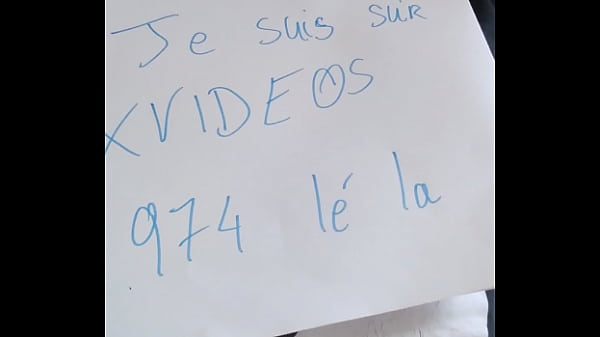 Je suis sur
XVIDEOS
974 lé la